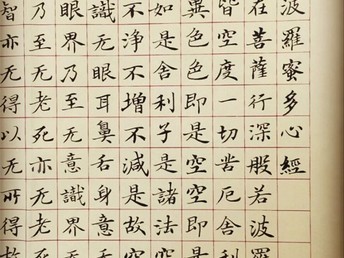 波羅蜜多心經
在菩薩行深般若波羅
皆空度一切苦厄舍利
異色色即是空空即是
如是舍利子是諸法空
不淨不增不減是故空
識无眼耳鼻舌身意无
眼界乃至无意識界无
乃至无老死亦无老死
智亦无得以无所得故